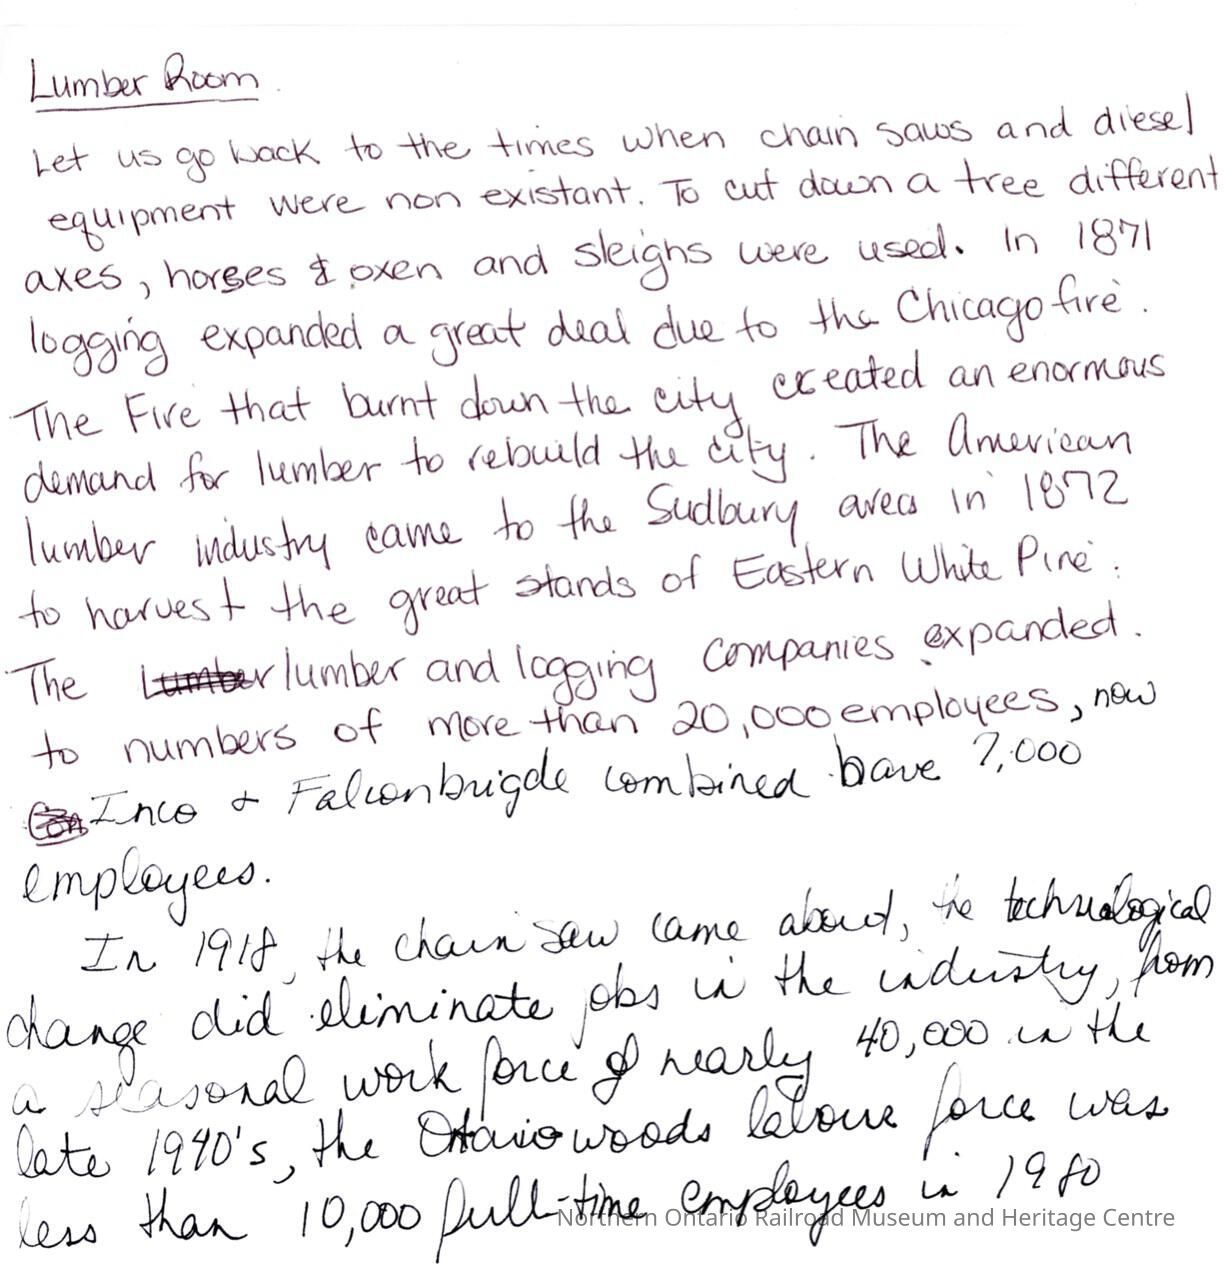 Lumber Room
Let us go back to the times when chain saws and diesel
equipment were non existant. To cut down a tree different
axes, horses & oxen and sleighs were used. In 1871
logging expanded a great deal due to the Chicago fire.
The Fire that burnt down the city created an enormous
demand for lumber to rebuild the city. The American
lumber industry came to the Sudbury area in 1872
to harvest the great stands of Eastern White Pine.
The lumber and logging companies expanded.
to numbers of more than 20,000 employees, now
Inco + Falconbrigde combined have 7,000
employees.
In 1918, the chain saw came about, the technological
change did eliminate jobs in the industry, from
a seasonal work force of nearly 40,000 in the
late 1940's, the Otario woods labour force was
less than 10,000 full-time employees in 1980
Northern Ontario Railroad Museum and Heritage Centre